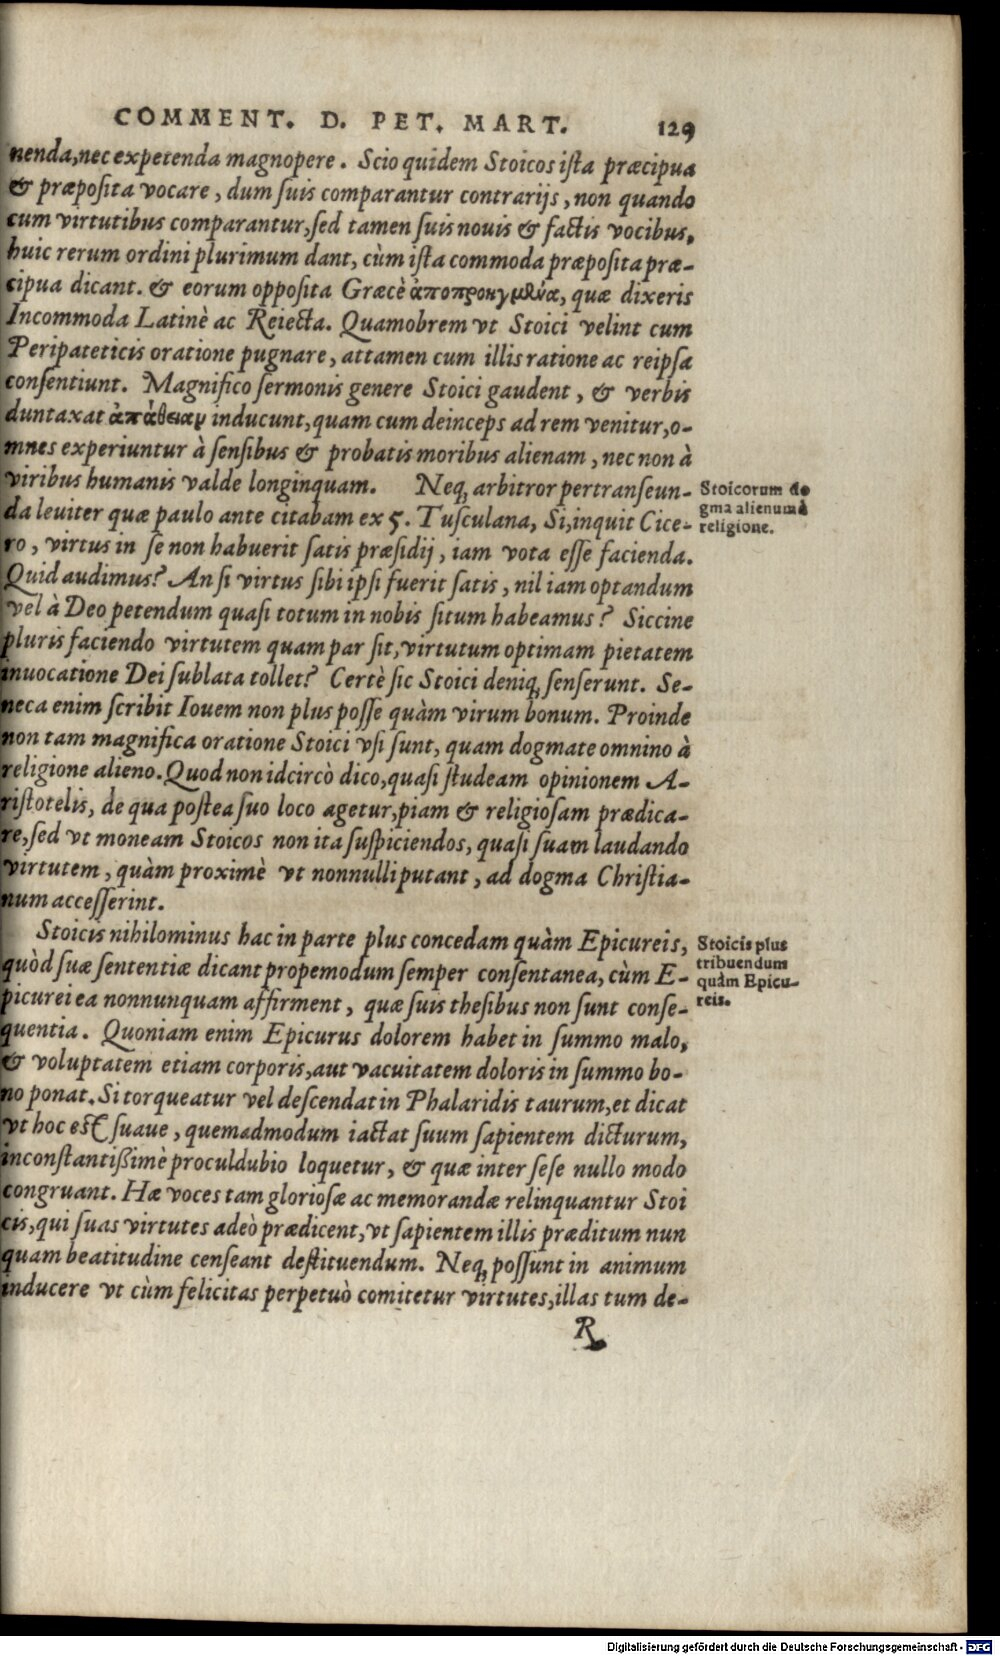 COMMENT. D. PET. MART. 129
nenda, nec expetenda magnopere. Scio quidem Stoicos ista præcipua
& præposita vocare, dum suis comparantur contrarijs, non quando
cum virtutibus comparantur, sed tamen suis nouis & factis vocibus,
huic rerum ordini plurimum dant, cùm ista commoda præposita præ-
cipua dicant. & eorum opposita Græcè ἀποπροηγμθύα, quæ dixeris
Incommoda Latinè ac Reiecta. Quamobrem vt Stoici velint cum
Peripateticis oratione pugnare, attamen cum illis ratione ac reipsa
consentiunt. Magnifico sermonis genere Stoici gaudent, & verbis
duntaxat ἀπάθειαν inducunt, quam cum deinceps ad rem venitur, o-
mnes experiuntur à sensibus & probatis moribus alienam, nec non à
viribus humanis valde longinquam. Neq; arbitror pertranseun-
da leuiter quæ paulo ante citabam ex 5. Tusculana, Si, inquit Cice-
ro, virtus in se non habuerit satis præsidij, iam vota esse facienda.
Quid audimus? An si virtus sibi ipsi fuerit satis, nil iam optandum
vel à Deo petendum quasi totum in nobis situm habeamus? Siccine
pluris faciendo virtutem quam par sit, virtutum optimam pietatem
inuocatione Dei sublata tollet? Certè sic Stoici deniq; senserunt. Se-
neca enim scribit Iouem non plus posse quàm virum bonum. Proinde
non tam magnifica oratione Stoici vsi sunt, quam dogmate omnino à
religione alieno. Quod non idcircò dico, quasi studeam opinionem A-
ristotelis, de qua postea suo loco agetur, piam & religiosam prædica-
re, sed vt moneam Stoicos non ita suspiciendos, quasi suam laudando
virtutem, quàm proximè vt nonnulli putant, ad dogma Christia-
num accesserint.
Stoicorum do
gma alienum à
religione.
Stoicis nihilominus hac in parte plus concedam quàm Epicureis,
quòd suæ sententiæ dicant propemodum semper consentanea, cùm E-
picurei ea nonnunquam affirment, quæ suis thesibus non sunt conse-
quentia. Quoniam enim Epicurus dolorem habet in summo malo,
& voluptatem etiam corporis, aut vacuitatem doloris in summo bo-
no ponat. Si torqueatur vel descendat in Phalaridis taurum, et dicat
vt hoc est suaue, quemadmodum iactat suum sapientem dicturum,
inconstantißimè proculdubio loquetur, & quæ inter sese nullo modo
congruant. Hæ voces tam gloriosæ ac memorandæ relinquantur Stoi
cis, qui suas virtutes adeò prædicent, vt sapientem illis præditum nun
quam beatitudine censeant destituendum. Neq; possunt in animum
inducere vt cùm felicitas perpetuò comitetur virtutes, illas tum de-
Stoicis plus
tribuendum
quàm Epicu-
reis.
R
Digitalisierung gefördert durch die Deutsche Forschungsgemeinschaft - DFG